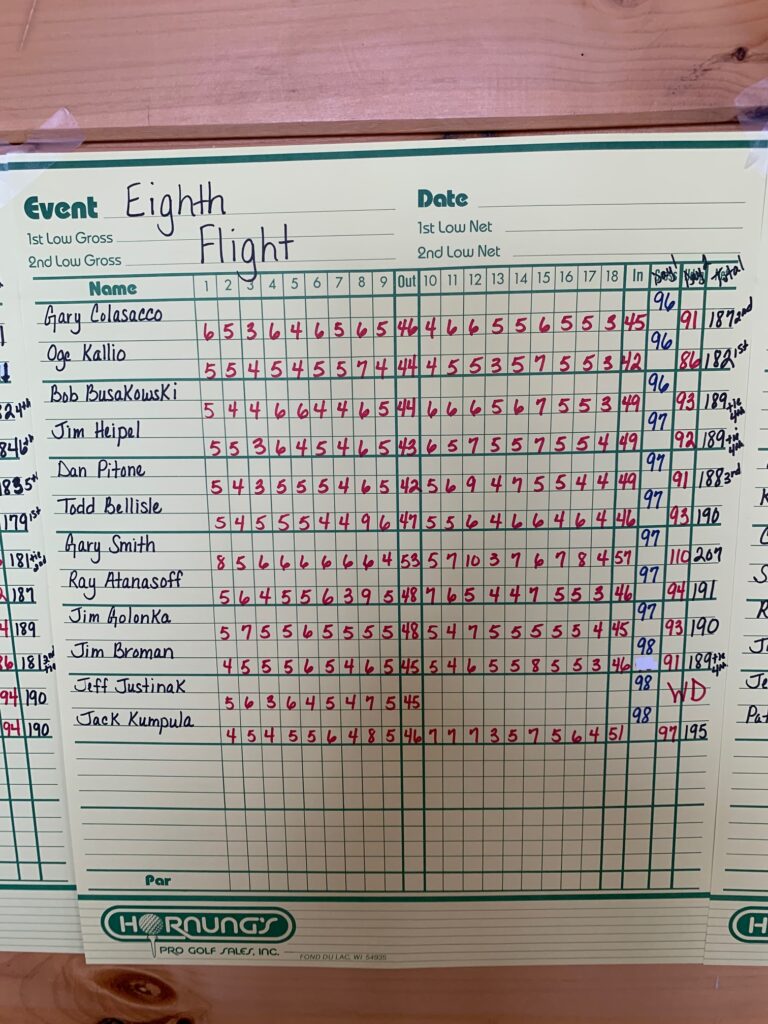 Event Eighth Date
1st Low Gross Flight 1st Low Net
2nd Low Gross 2nd Low Net
Name 1 2 3 4 5 6 7 8 9 Out 10 11 12 13 14 15 16 17 18 In Day 1 Day 2 Total
Gary Colasacco 96
6 5 3 6 4 6 5 6 5 46 4 6 6 5 5 6 5 5 3 45 91 187 2nd
Oge Kallio 96
5 5 4 5 4 5 5 7 4 44 4 5 5 3 5 7 5 5 3 42 86 182 1st
Bob Busakowski 96
5 4 4 6 6 4 4 6 5 44 6 6 6 5 6 7 5 5 3 49 93 189 tie 4th
Jim Heipel 97
5 5 3 6 4 5 4 6 5 43 6 5 7 5 5 7 5 5 4 49 92 189 tie 4th
Dan Pitone 97
5 4 3 5 5 5 4 6 5 42 5 6 9 4 7 5 5 4 4 49 91 188 3rd
Todd Bellisle 97
5 4 5 5 5 4 4 9 6 47 5 5 6 4 6 6 4 6 4 46 93 190
Gary Smith 97
8 5 6 6 6 6 6 6 4 53 5 7 10 3 7 6 7 8 4 57 110 207
Ray Atanasoff 97
5 6 4 5 5 6 3 9 5 48 7 6 5 4 4 7 5 5 3 46 94 191
Jim Golonka 97
5 7 5 5 6 5 5 5 5 48 5 4 7 5 5 5 5 5 4 45 93 190
Jim Broman 98
4 5 5 5 6 5 4 6 5 45 5 4 6 5 5 8 5 5 3 46 91 189 tie 4th
Jeff Justinak 98 WD
5 6 3 6 4 5 4 7 5 45
Jack Kumpula 98
4 5 4 5 5 6 4 8 5 46 7 7 7 3 5 7 5 6 4 51 97 195
Par
HORNUNG'S
PRO GOLF SALES, INC.
FOND DU LAC, WI 54935
179 1st
187
189
94 190
94 190